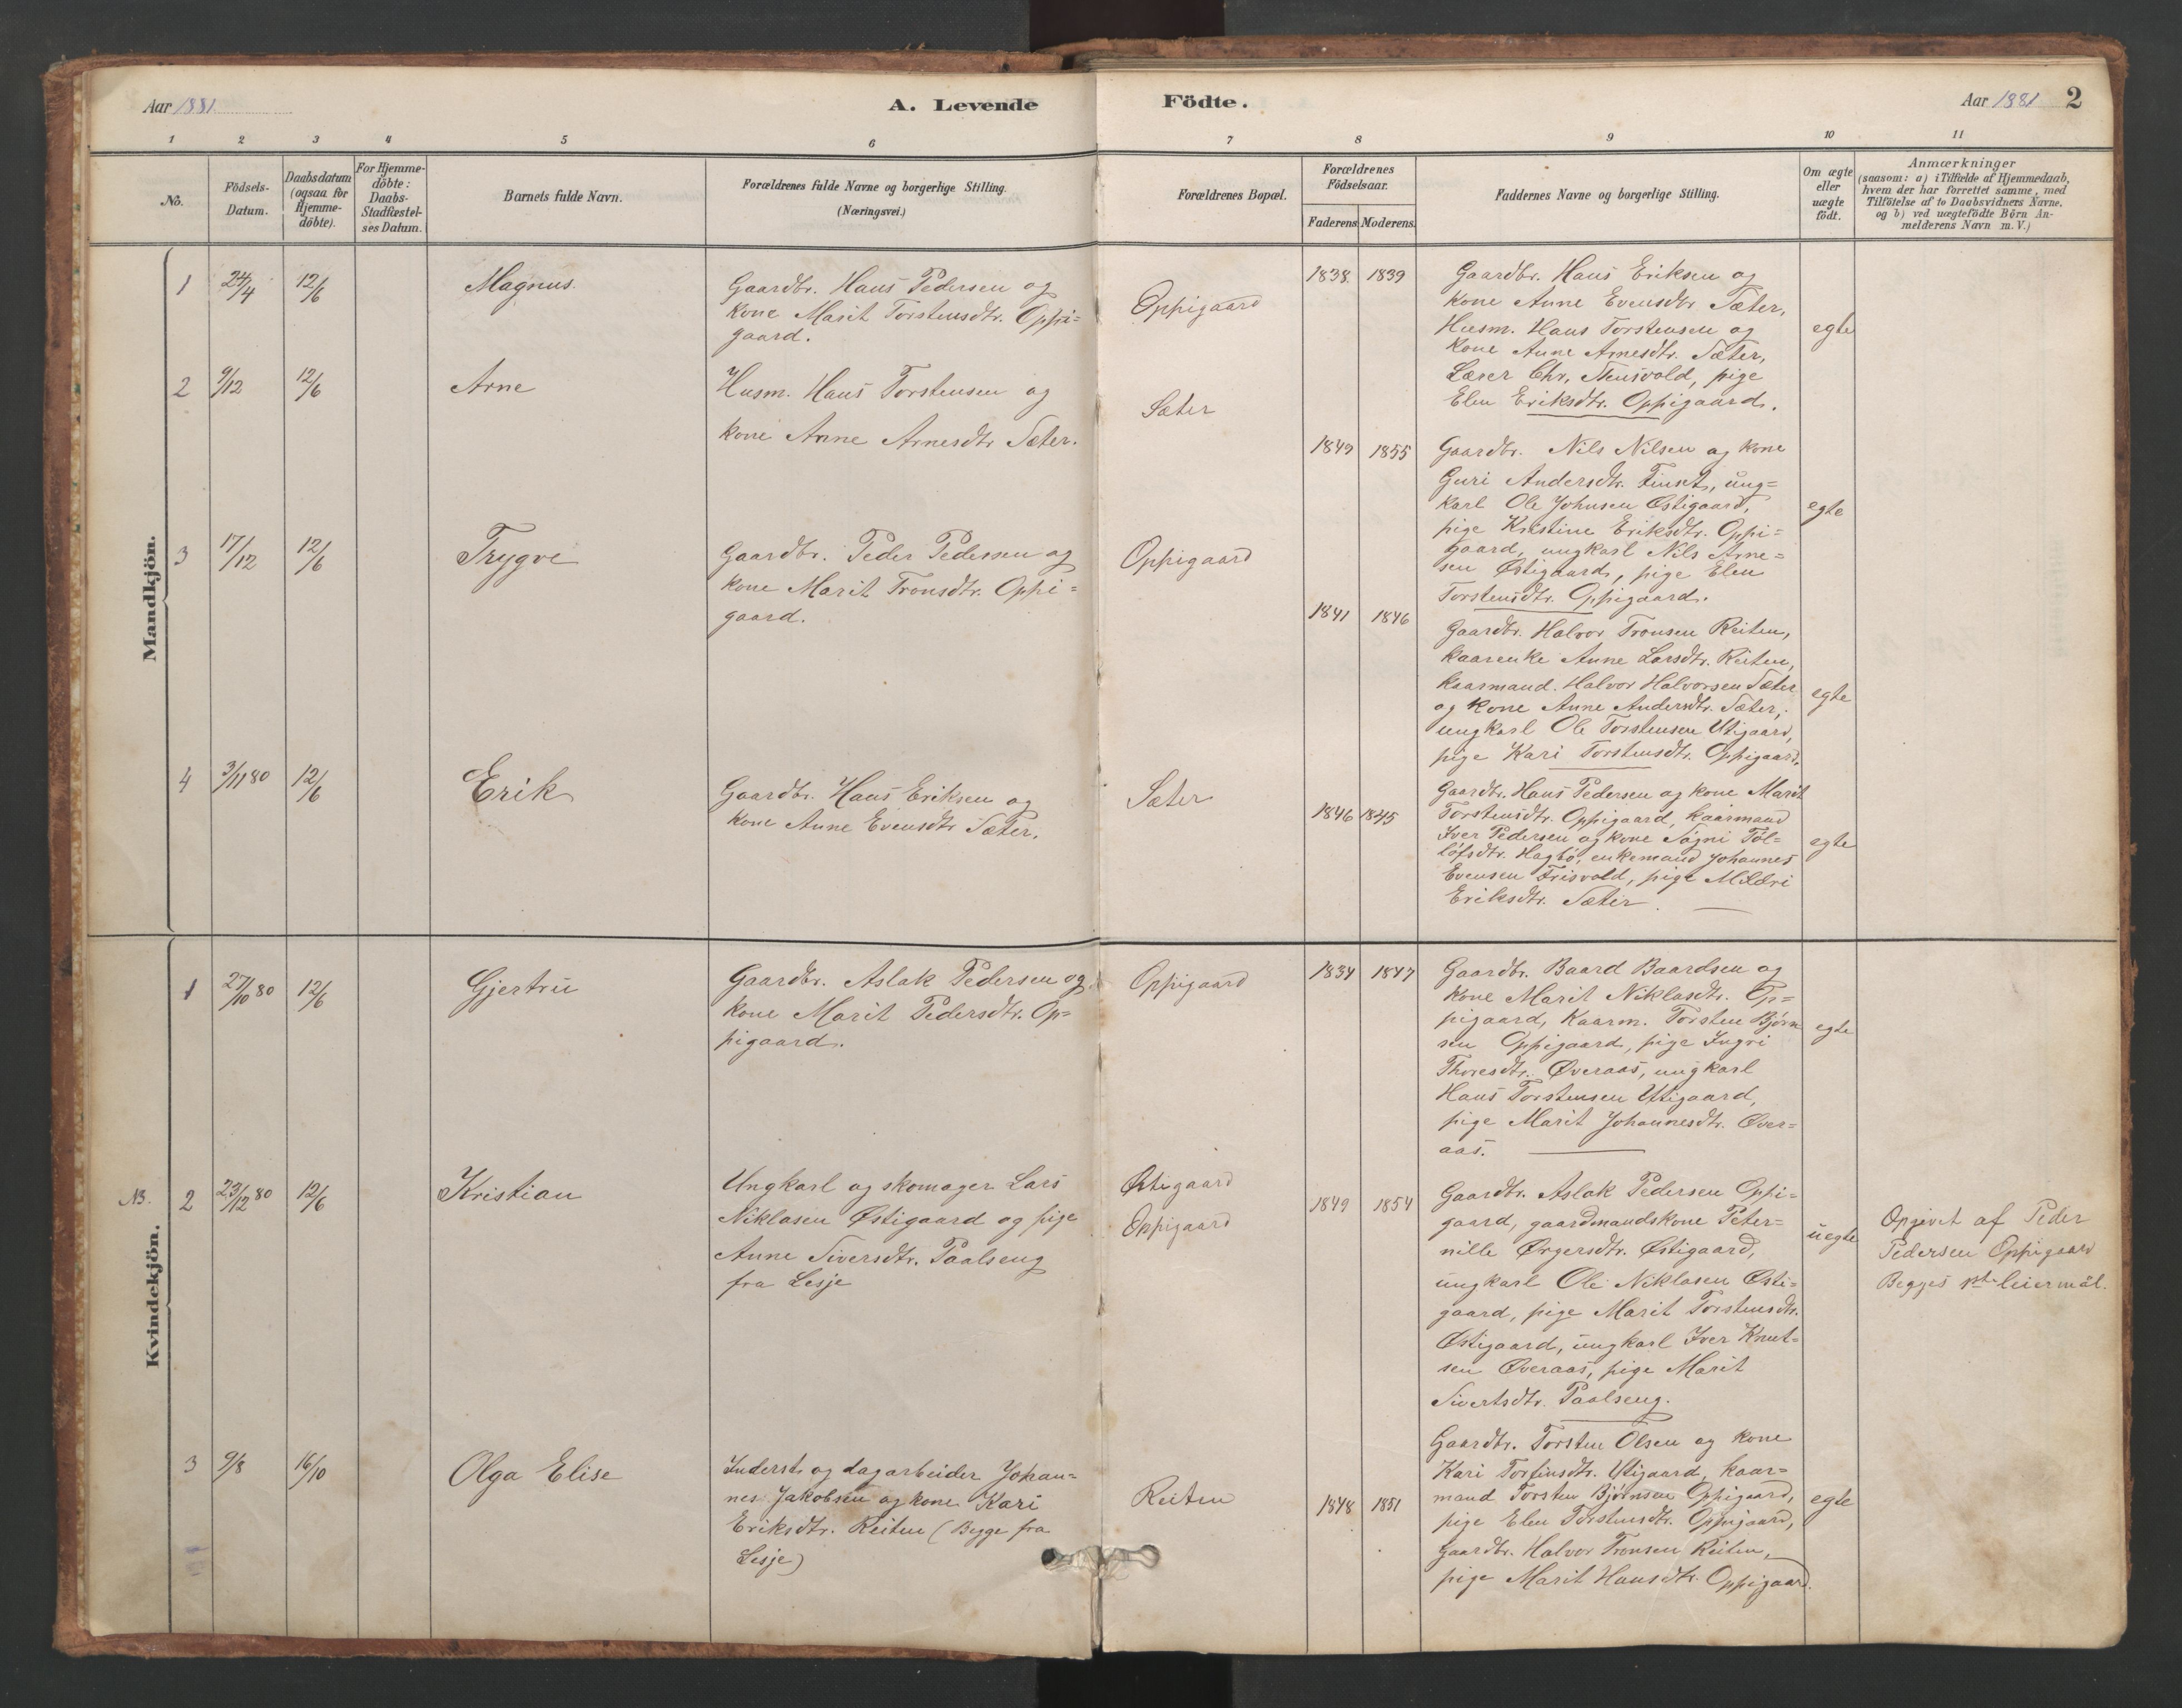 Aar 1881.
A. Levende
Födte.
Aar 1881
2
1 2 3 4 5 6 7 8 9 10 11
No.
Födsels-
Datum.
Daabsdatum
(ogsaa for
Hjemme-
döbte).
For Hjemme-
döbte:
Daabs-
Stadfæstel-
ses Datum.
Barnets fulde Navn.
Forældrenes fulde Navne og borgerlige Stilling.
(Næringsvei.)
Forældrenes Bopæl.
Forældrenes
Födselsaar.
Faderens. Moderens.
Faddernes Navne og borgerlige Stilling.
Om ægte
eller
uægte
födt.
Anmærkninger
(saasom: a) i Tilfælde af Hjemmedaab,
hvem der har forrettet samme, med
Tilföielse af to Daabsvidners Navne.
og b) ved uægtefödte Börn An-
melderens Navn m. V.)
Mandkjön.
1 24/4 12/6 Magnus.
Gaardbr. Hans Pedersen og
kone Marit Torstensdtr. Oppi=
gaard.
Oppigaard
1838. 1839
Gaardbr. Hans Eriksen og
kone Anne Evensdtr. Sæter,
Husm. Hans Torstensen og
kone Anne Arnesdtr. Sæter,
Lærer Chr. Neusvold, pige
Elen Eriksdtr. Oppigaard.
egte
2 9/12 12/6 Arne
Husm. Hans Torstensen og
kone Anne Arnesdtr Sæter.
Sæter
1849 1855
Gaardbr. Nils Nilsen og kone
Guri Andersdtr. Finset, ung=
karl Ole Johnsen Østigaard,
pige Kristine Eriksdtr. Oppi=
gaard, ungkarl Nils Arne=
sen Østigaard, pige Elen
Torstensdtr. Oppigaard.
egte
3 17/12 12/6 Trygve
Gaardbr. Peder Pedersen og
kone Marit Tronsdtr. Oppi=
gaard.
Oppigaard
1841 1846
Gaardbr. Halvor Tronsen Reiten,
kaarenke Anne Larsdtr. Reiten,
kaarmand. Halvor Halvorsen Sæter
og kone Anne Andersdtr. Sæter,
ungkarl Ole Torstensen Utigaard,
pige Kari Torstensdtr. Oppigaard.
egte
4 3/11 80 12/6 Erik
Gaardbr. Hans Eriksen og
kone Anne Evensdtr Sæter.
Sæter
1846 1845
Gaardbr. Hans Pedersen og kone Marit
Torstensdtr. Oppigaard, kaarmand
Iver Pedersen og kone Signi Tol=
löfsdtr. Hagbö, enkemand Johannes
Evensen Frisvold, pige Mildri
Eriksdtr. Sæter.
egte
Kvindekjön.
1 27/10 80 12/6 Gjertru
Gaardbr. Aslak Pedersen og
kone Marit Pedersdtr. Op=
pigaard.
Oppigaard
1834 1847
Gaardbr. Baard Baardsen og
kone Marit Niklasdtr. Op=
pigaard, Kaarm. Torsten Björn
sen Oppigaard, pige Ingri
Thoresdtr. Øveraas, ungkarl
Hans Torstensen Utigaard,
pige Marit Johannesdtr. Øver=
aas.
egte
NB. 2 23/12 80 12/6 Kristian
Ungkarl og skomager Lars
Niklasen Østigaard og pige
Anne Siversdtr. Paalseng
fra Lesje
Østigaard
Oppigaard
1849 1854
Gaardbr. Aslak Pedersen Oppi=
gaard, gaardmandskone Peter=
nille Ørgersdtr. Østigaard,
ungkarl Ole Niklasen Østi=
gaard, pige Marit Torstensdtr.
Østigaard, ungkarl Iver Knut=
sen Øveraas, pige Marit
Sivertsdtr. Paalseng.
uegte
Opgivet af Peder
Pedersen Oppigaard
Begges 1ste leiermål.
3 9/8 16/10 Olga Elise
Inderst og dagarbeider Johan=
nes Jakobsen og kone Kari
Eriksdtr. Reiten (Begge fra
Lesje)
Reiten
1848 1851
Gaardbr. Torsten Olsen og kone
Kari Torfinsdtr. Utigaard, kaar=
mand Torsten Björnsen Oppigaard,
pige Elen Torstensdtr. Oppigaard,
Gaardbr. Halvor Tronsen Reiten,
pige Marit Hansdtr. Oppigaard.
egte